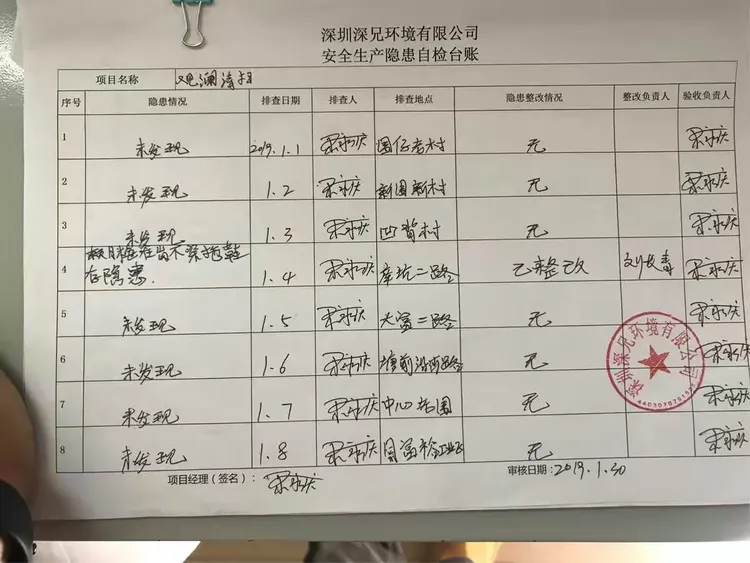 深圳深兄环境有限公司
安全生产隐患自检台账
项目名称 观澜清扫
序号 隐患情况 排查日期 排查人 排查地点 隐患整改情况 整改负责人 验收负责人
1 未发现 2019.1.1 宋永庆 围仔老村 无 宋永庆
2 未发现 1.2 宋永庆 新围新村 无 宋永庆
3 未发现 1.3 宋永庆 凹背村 无 宋永庆
存隐患.
4 1.4 宋永庆 库坑二路 已整改 刘长春 宋永庆
5 未发现 1.5 宋永庆 大富二路 无 宋永庆
6 未发现 1.6 宋永庆 塘前沿西路 无 宋永庆
7 未发现 1.7 宋永庆 中心 无 宋永庆
8 未发现 1.8 宋永庆 无 宋永庆
深圳深兄环境有限公司
项目经理（签名）： 宋永庆 审核日期: 2019.1.30